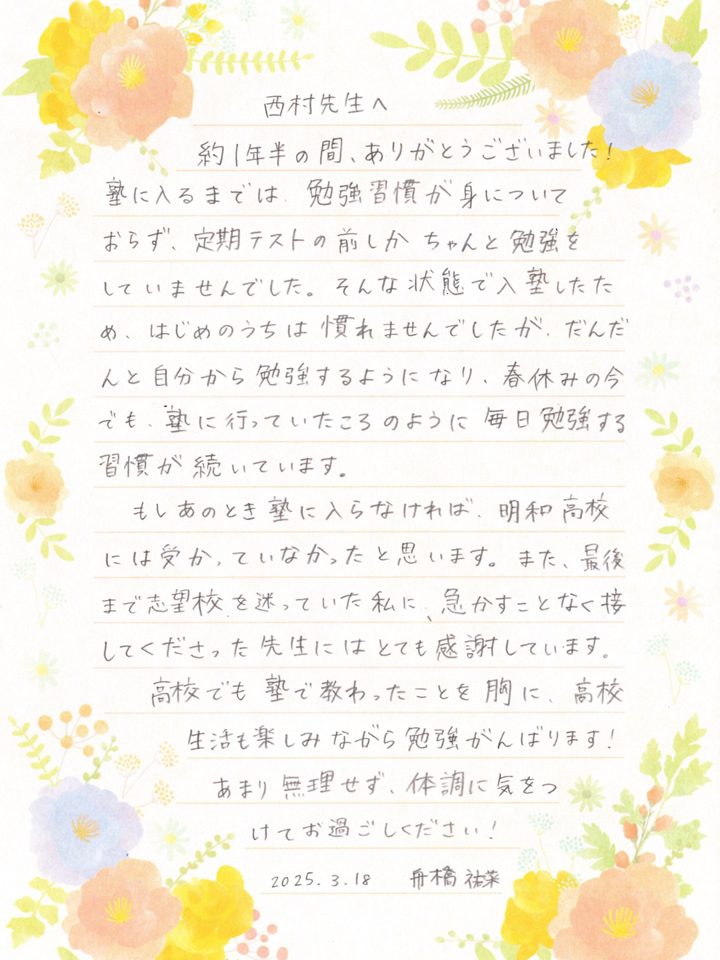 西村先生へ
約1年半の間、ありがとうございました!
塾に入るまでは、勉強習慣が身について
おらず、定期テストの前しかちゃんと勉強を
していませんでした。そんな状態で入塾したた
め、はじめのうちは慣れませんでしたが、だんだ
んと自分から勉強するようになり、春休みの今
でも、塾に行っていたころのように毎日勉強する
習慣が続いています。
もしあのとき塾に入らなければ、明和高校
には受かっていなかったと思います。また、最後
まで志望校を迷っていた私に、急かすことなく接
してくださった先生にはとても感謝しています。
高校でも塾で教わったことを胸に、高校
生活も楽しみながら勉強がんばります!
あまり無理せず、体調に気をつ
けてお過ごしください!
2025.3.18 舟橋